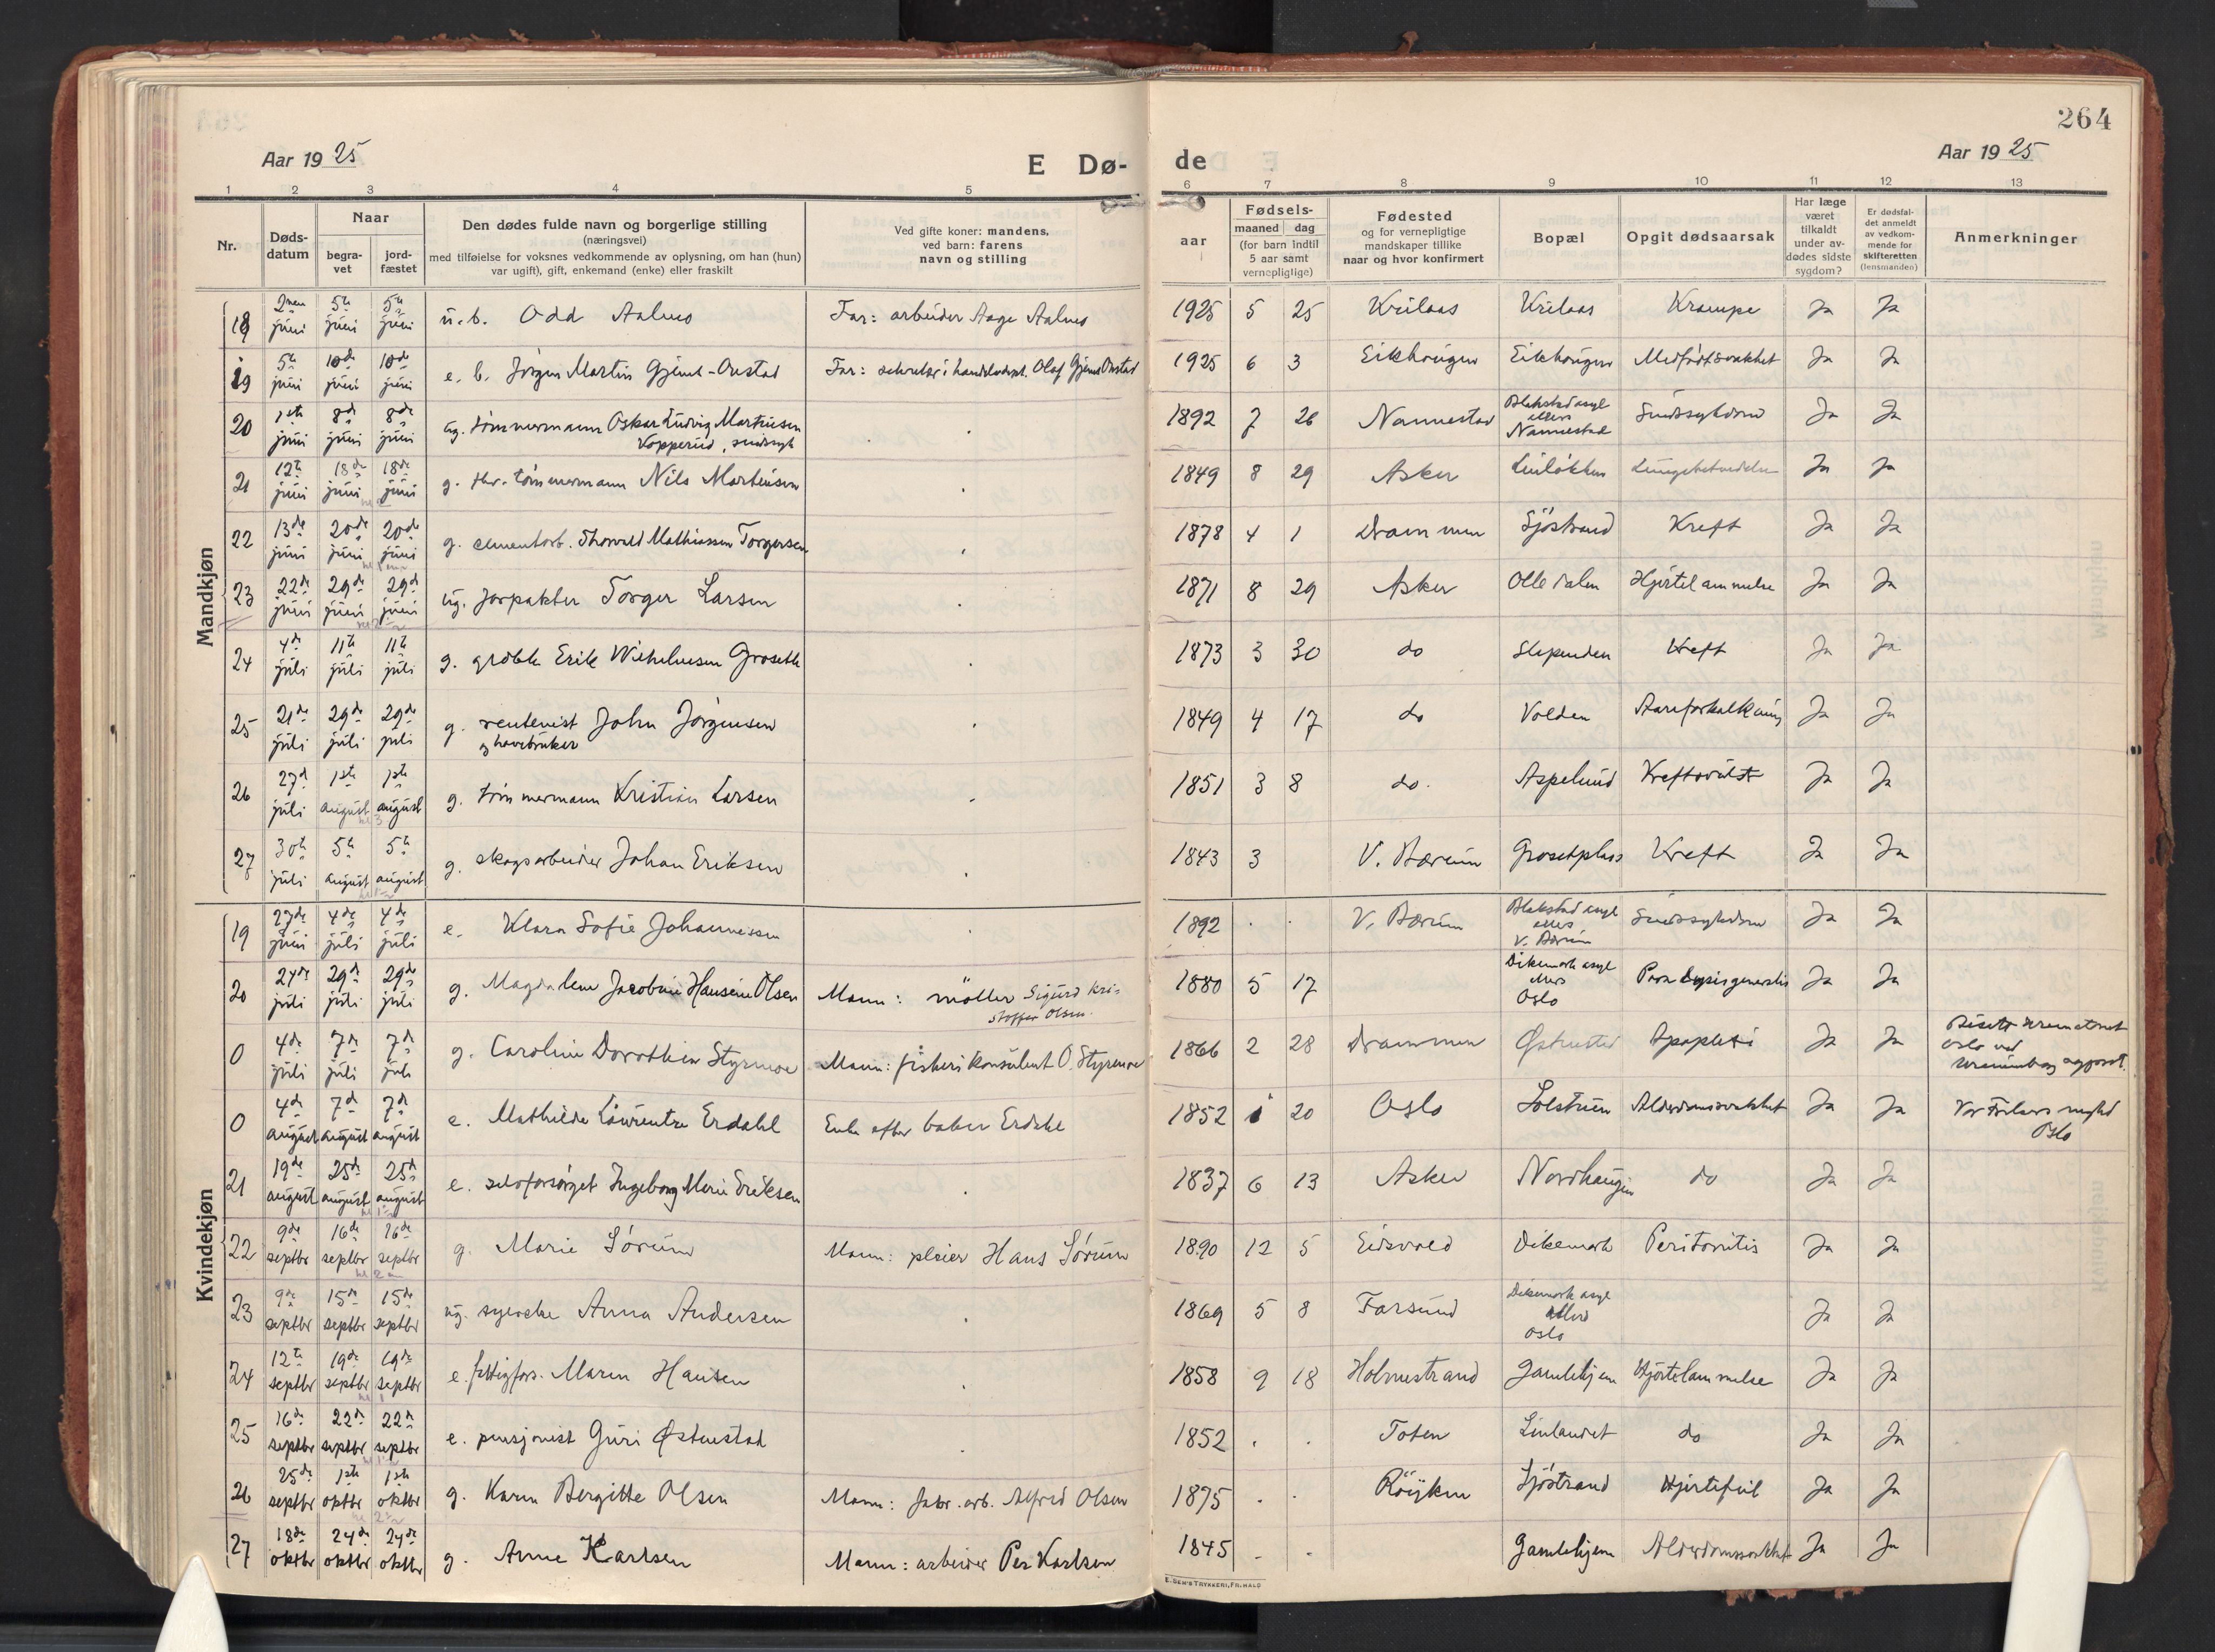 264
Aar 1925
E Dø-
de
Aar 1925
1 2 3 4 5 6 7 8 9 10 11 12 13
Nr.
Døds-
datum
Naar
begra-
vet
jord-
fæstet
Den dødes fulde navn og borgerlige stilling
(næringsvei)
med tilføielse for voksnes vedkommende av oplysning, om han (hun)
var ugift), gift, enkemand (enke) eller fraskilt
Ved gifte koner: mandens,
ved barn: farens
navn og stilling
aar
Fødsels-
maaned dag
(for barn indtil
5 aar samt
vernepligtige)
Fødested
og for vernepligtige
mandskaper tillike
naar og hvor konfirmert
Bopæl
Opgit dødsaarsak
Har læge
været
tilkaldt
under av-
dødes sidste
sygdom?
Er dødsfal-
det anmeldt
av vedkom-
mende for
skifteretten
(lensmanden)
Anmerkninger
Mandkjøn
18 2nen juni 5te juni 5te juni u.b. Odd Aalnes Far: arbeider Aage Aalnes 1925 5 25 Krampe Ja Ja
19 5te juni 10de juni 10de juni e. b. Jørgen Martin Gjems-Onstad Far: sekretær i Olaf Gjems Onstad 1925 6 3 Eikhaugen Eikhaugen Medfødt svakhet Ja Ja
20 1ste juni 8de juni 8de juni ug. tømmermann Oskar Ludvig Martinsen
Kopperud, sindssyk 1892 7 26 Nannestad Blakstad asyl
ellers
Nannestad Sindssykdom Ja Ja
21 12te juni 18de juni 18de juni g. fhv. tømmermann Nils Martinsen 1849 8 29 Asker Lungebetændelse Ja Ja
22 13de juni 20de juni 20de juni g. cementarb. Thorvald Mathiassen Torgersen 1878 4 1 Drammen Sjöstrand Kreft Ja Ja
23 22de juni 29de juni 29de juni ug. forpakter Torger Larsen 1871 8 29 Asker Olledalen Hjertelammelse Ja Ja
24 4de juli 11te juli 11te juli g. Erik Wilhelmsen Groseth 1873 3 30 do Slependen Kreft Ja Ja
25 21de juli 29de juli 29de juli g. rentenist John Jørgensen
og havebruker 1849 4 17 do Volden Aareforkalkning Ja Ja
26 27de juli 1ste august 1ste august g. tømmermann Kristian Larsen 1851 3 8 do. Aspelund Kreftsvulst Ja Ja
27 30te juli 5te august 5te august g. skogsarbeider Johan Eriksen 1843 3 V. Bærum Grosetplass Kreft Ja Ja
Kvindekjøn
19 27de juni 4de juli 4de juli e. Klara Sofie Johannessen 1892 . . V. Bærum Blakstad asyl
ellers
V. Bærum Sindssykdom Ja Ja
20 24de juli 29de juli 29de juli g. Magdalene Jacobine Hansine Olsen Mann: møller Sigurd Kri-
stoffer Olsen. 1880 5 17 Dikemark asyl
ellers
Oslo Ja Ja
0 4de juli 7de juli 7de juli g. Caroline Dorothea Styrmoe Mann: fiskerikonsulent O. Styrmoe 1866 2 28 Drammen Østensted Apoplexi Ja Ja Bisatt krematoriet
Oslo
0 4de august 7de august 7de august e. Mathilde Lawrentze Erdahl Enke efter baker Erdahl 1852 20 Oslo Solstuen Alderdomssvakhet Ja Ja Vor Frelsers
Oslo
21 19de august 25de august 25de august e. selvforsørget Ingeborg Marie Eriksen 1837 6 13 Asker Nordhaugen do Ja Ja
22 9de septbr 16de septbr 16de septbr g. Marie Sørum Mann: pleier Hans Sørum 1890 12 5 Eidsvold Dikemark Peritonitis Ja Ja
23 9de septbr 15de septbr 15de septbr ug. syerske Anna Andersen 1869 5 8 Farsund Dikemark asyl
ellers
Oslo Ja Ja
24 12te septbr 19de septbr 19de septbr e. fattigfors. Maren Hansen 1858 9 18 Holmestrand Gamlehjem Hjertelammelse Ja Ja
25 16de septbr 22de septbr 22de septbr e. pensjonist Guri Østenstad 1852 . . Toten Linlandet do Ja Ja
26 25de septbr 1ste oktbr 1ste oktbr g. Karen Bergitte Olsen Mann: fabr. arb. Alfred Olsen 1875 . . Röyken Sjöstrand Hjertefeil Ja Ja
27 18de oktbr 24de oktbr 24de oktbr g. Anne Karlsen Mann: arbeider Per Karlsen 1845 . . Gamlehjem Alderdomssvakhet Ja Ja
E. SEM'S TRYKKERI, FR.HALD